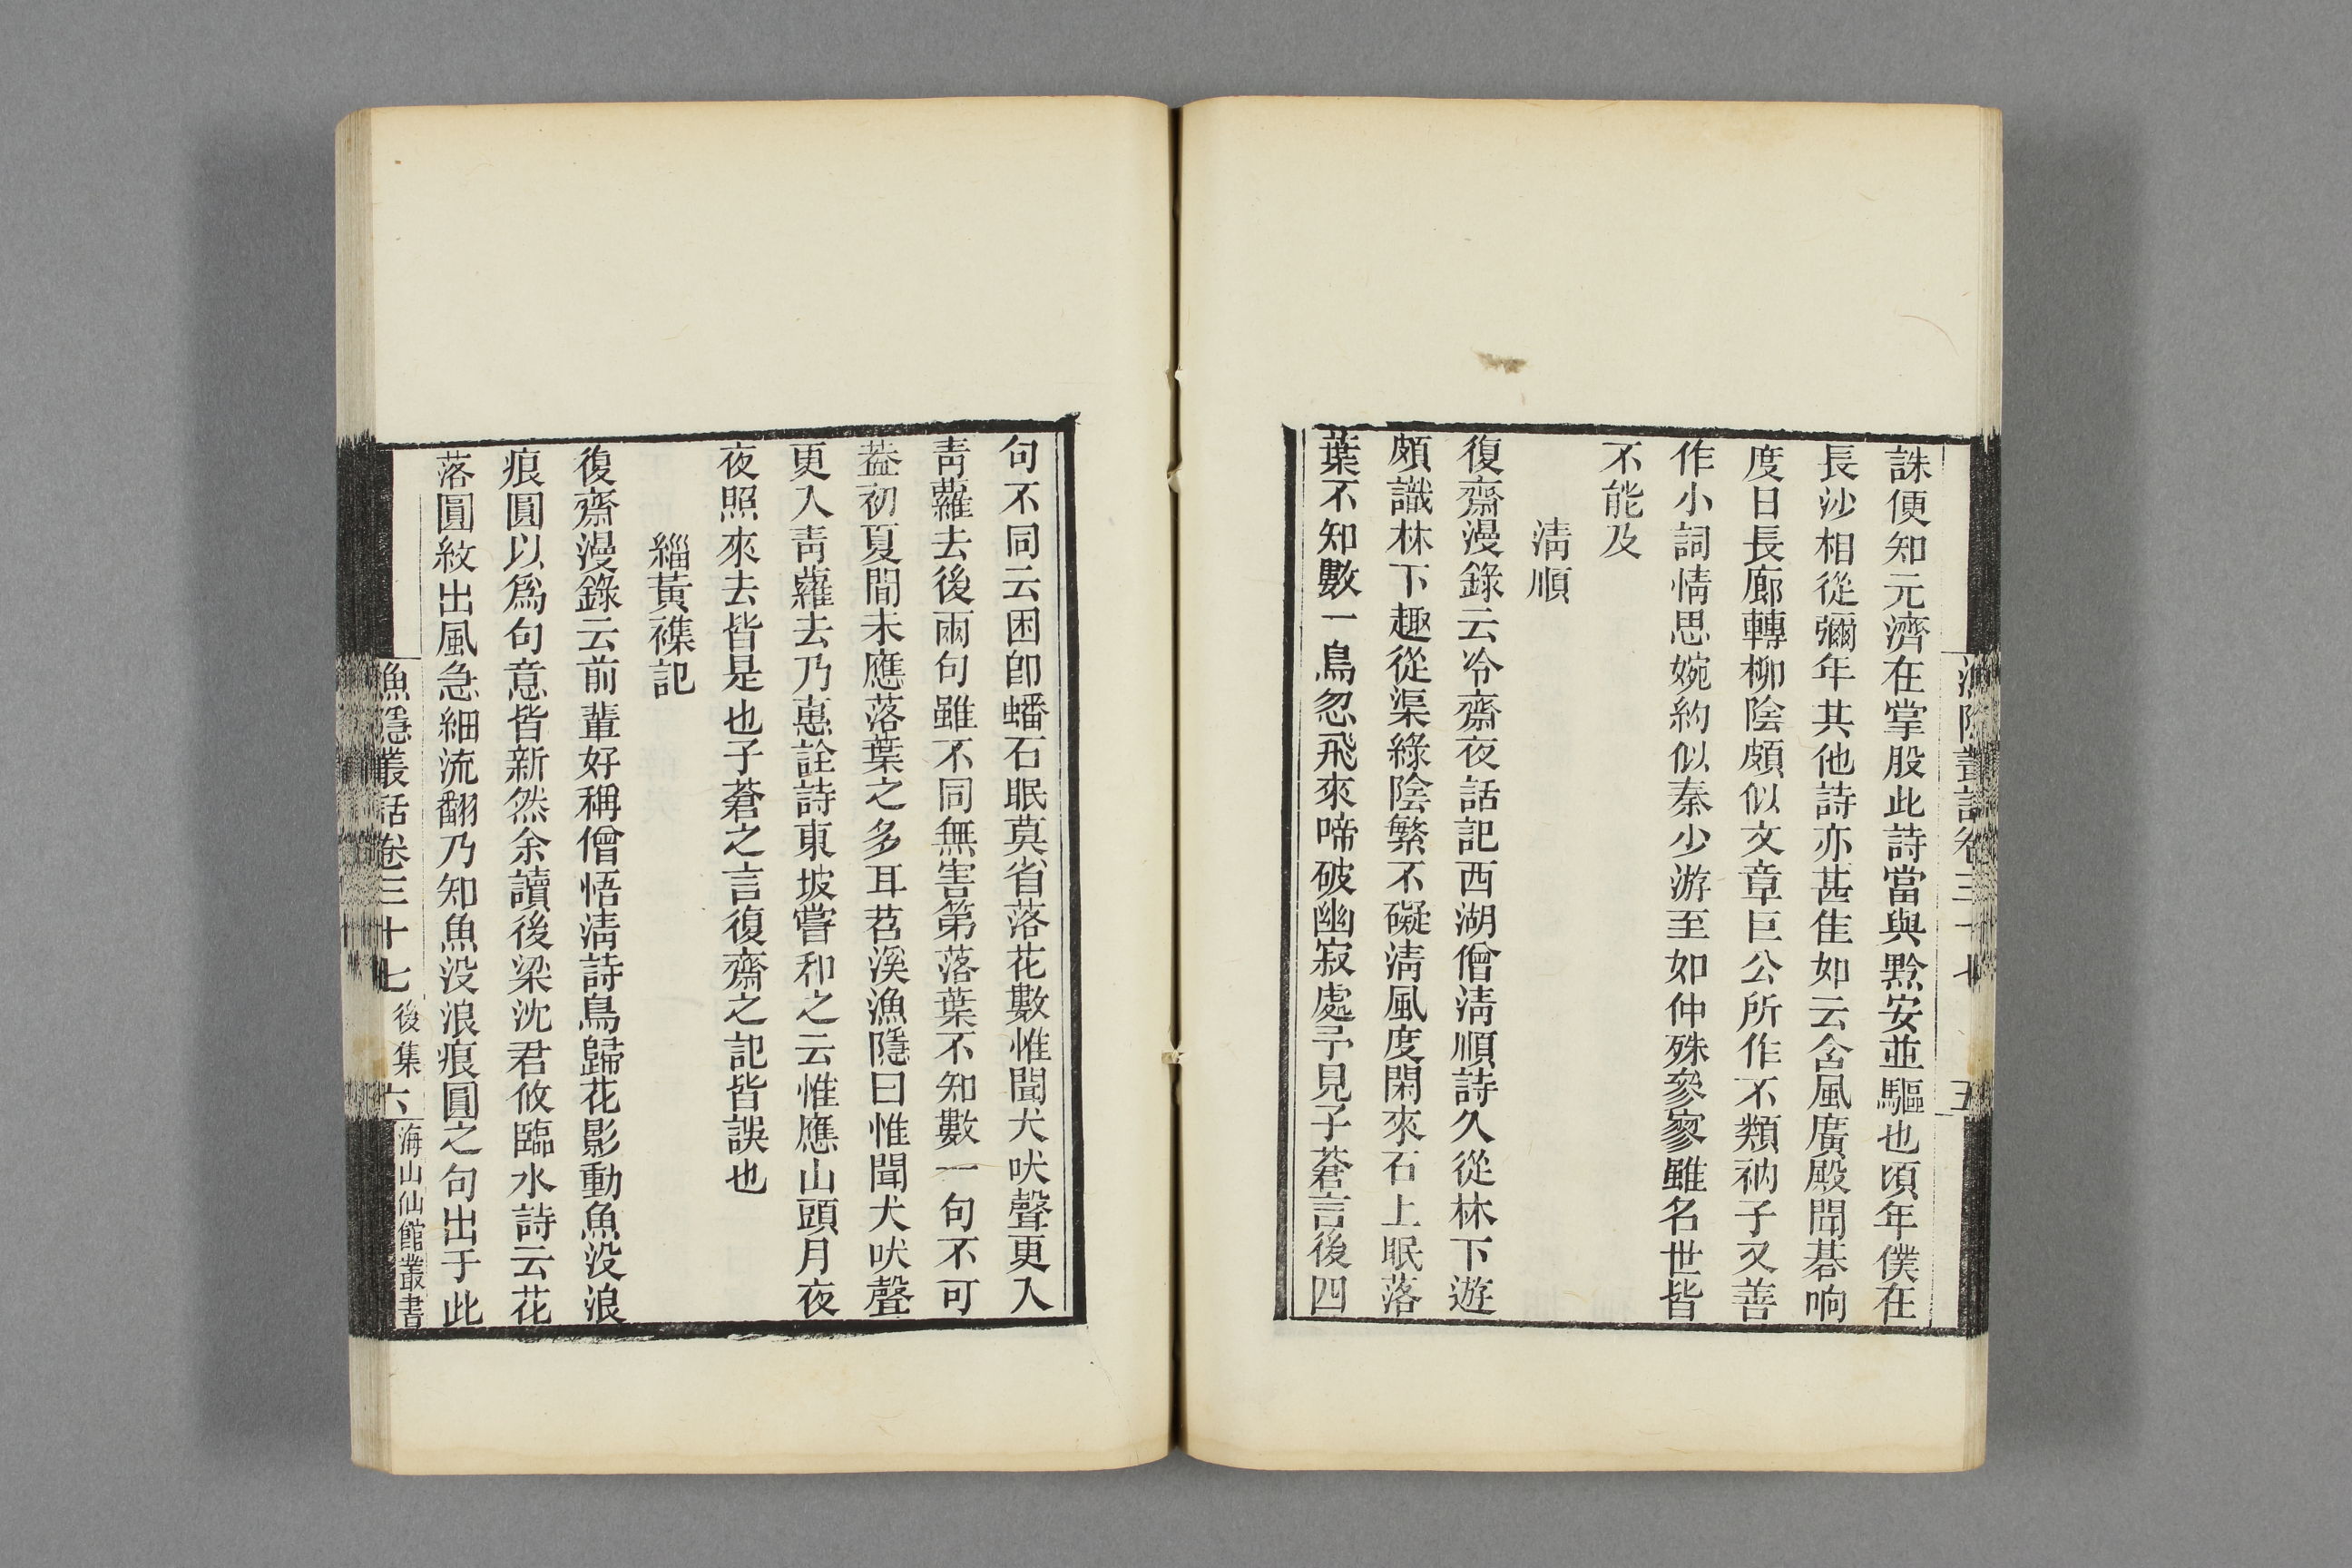 誅便知元濟在掌股此詩當與黥安並驅也頃年僕在
長沙相從彌年其他詩亦甚佳如云含風廣殿聞碁响
度日長廊轉柳陰頗似文章巨公所作不類衲子又善
作小詞情思婉約似秦少游至如仲殊參寥雖名世皆
不能及
淸順
復齋漫錄云冷齋夜話記西湖僧淸順詩久從林下遊
頗識林下趣從渠綠陰繁不礙淸風度閑來石上眠落
葉不知數一鳥忽飛來啼破幽寂處予見子蒼言後四
句不同云困卽蟠石眠莫省落花數惟聞犬吠聲更入
靑蘿去後兩句雖不同無害第落葉不知數一句不可
葢初夏間未應落葉之多耳苕溪漁隱曰惟聞犬吠聲
更入靑蘿去乃惠詮詩東坡嘗和之云惟應山頭月夜
夜照來去皆是也子蒼之言復齋之記皆誤也
緇黃襍記
復齋漫錄云前輩好稱僧悟淸詩鳥歸花影動魚没浪
痕圓以爲句意皆新然余讀後梁沈君攸臨水詩云花
落圓紋出風急細流翻乃知魚没浪痕圓之句出于此
漁隱叢話卷三十七 後集 六 海山仙館叢書